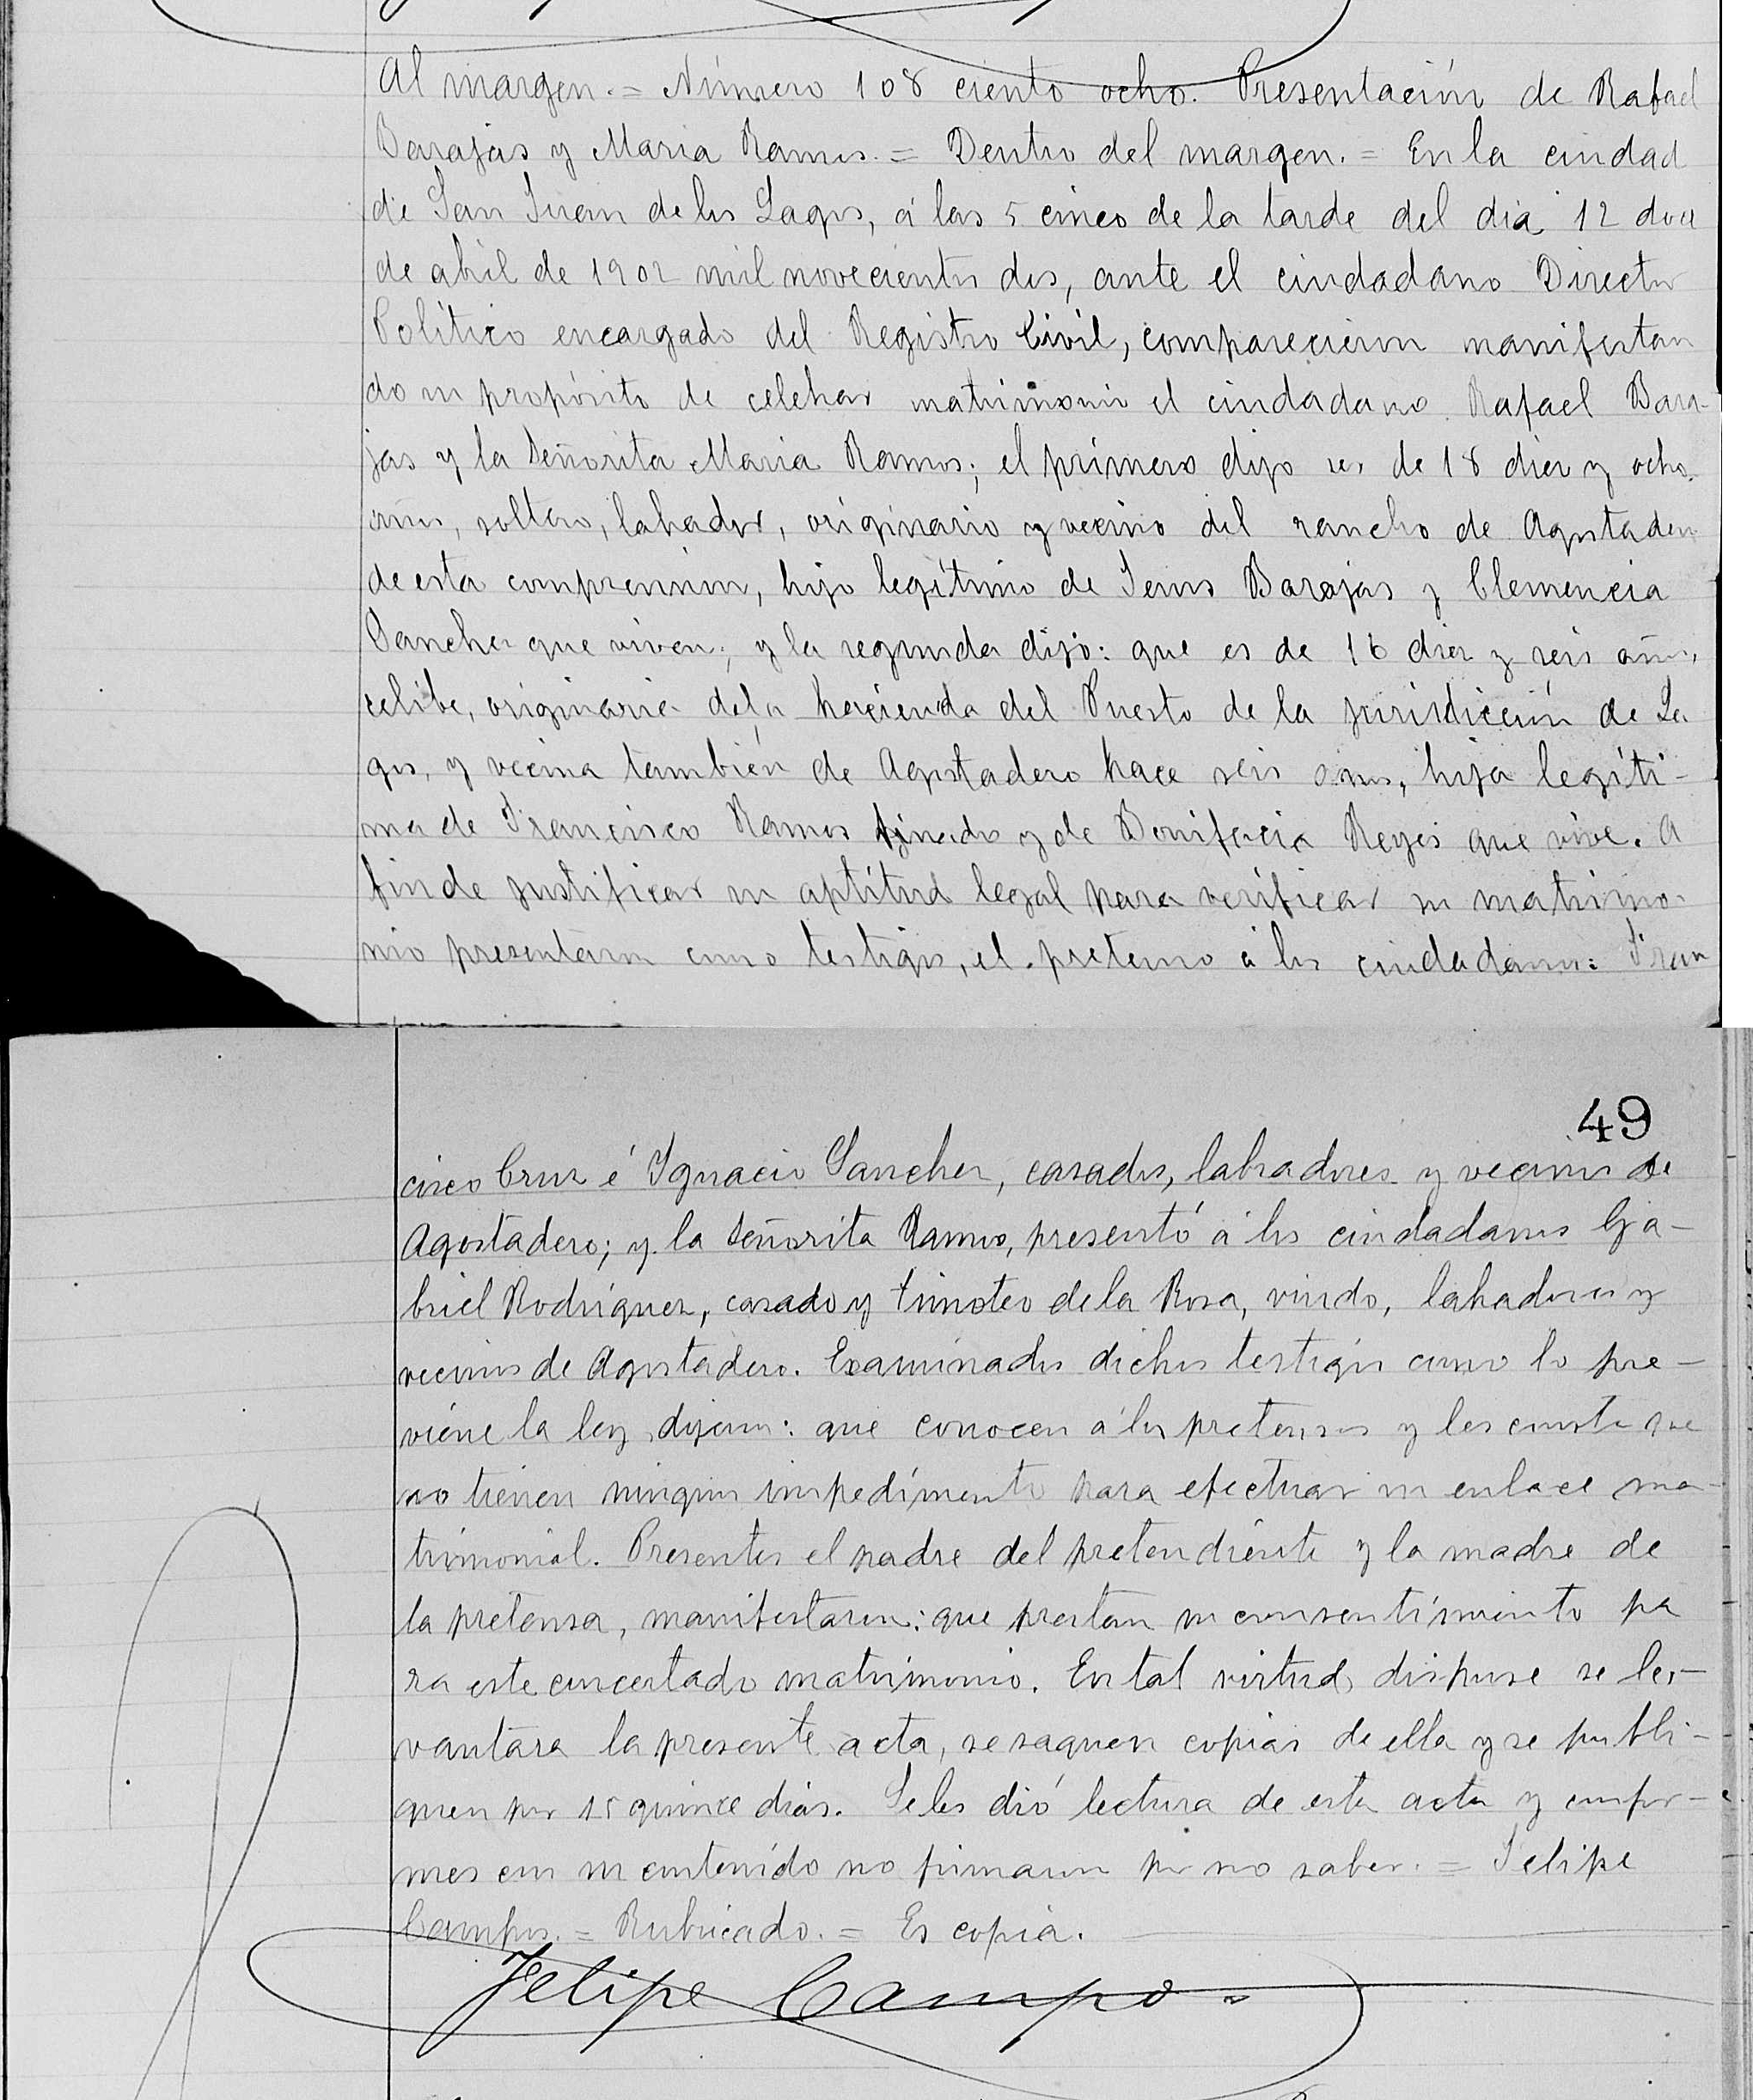 Al margen.= Número 108 ciento ocho. Presentación de Rafael
Barajas y Maria Ramos.= Dentro del margen.= En la ciudad
de San Juan de los Lagos, á las 5 cinco de la tarde del dia 12 doce
de abril de 1902 mil novecientos dos, ante el ciudadano Director
Politico encargado del Registro Civil, comparecieron manifestan
do su propósito de celebrar matrimonio el ciudadano Rafael Bara-
jas y la Señorita Maria Ramos; el primero dijo ser de 18 diez y ocho
años, soltero, labrador, originario y vecino del rancho de Agostadero
de esta comprension, hijo legítimo de Jesus Barajas y Clemencia
Sanchez que viven; y la segunda dijo: que es de 16 diez y seis años,
celibe, originaria de la hacienda del Puesto de la jurisdicción de La
gos, y vecina también de Agostadero hace seis años, hija legíti-
ma de Francisco Ramos finado y de Bonifacia Reyes que vive. A
fin de justificar su aptitud legal para verificar su matrimo-
nio presentaron como testigos, el pretenso á los ciudadanos: Fran
49
cisco Cruz é Ygnacio Sanchez, casados, labradores y vecinos de
Agostadero; y la Señorita Ramos, presentó á los ciudadanos Ga-
briel Rodríguez, casado y timoteo de la Rosa, viudo, labradores y
vecinos de Agostadero. Examinados dichos testigos como lo pre-
viene la ley, dijeron: que conocen á los pretensos y les consta que
no tienen ningun impedimento para efectuar su enlace ma-
trimonial. Presentes el padre del pretendiente y la madre de
la pretensa, manifestaron: que prestan su consentimiento pa
ra este concertado matrimonio. En tal virtud, dispuse se le-
vantara la presente acta, se saquen copias de ella y se publi-
quen por 15 quince dias. Se les dió lectura de esta acta y confor-
mes con su contenido no firmaron por no saber.= Felipe
Campos.= Rubricado.= Es copia.
Felipe Campos